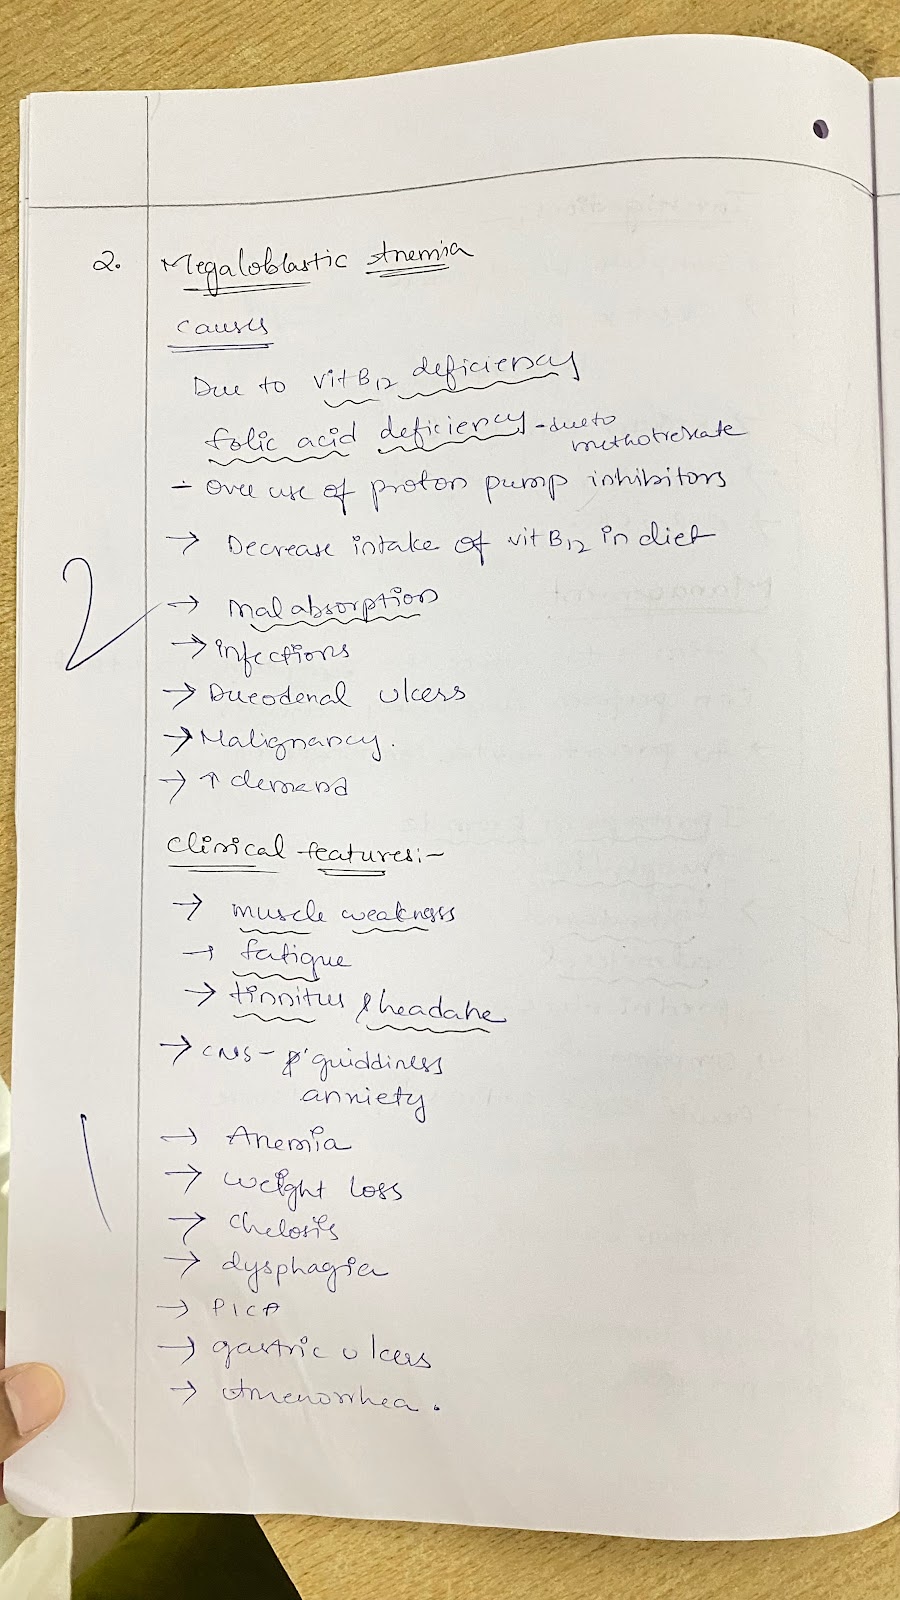 2. Megaloblastic Anemia
Causes
Due to vit B12 deficiency
folic acid deficiency - due to
methotrexate
- Over use of proton pump inhibitors
→ Decrease intake of vit B12 in diet
2 → Malabsorption
→ infections
→ Dueodenal ulcers
→ Malignancy.
→ ↑ demand
Clinical features:-
→ muscle weakness
→ fatigue
→ tinnitus & headake
→ CNS - guiddiness
anxiety
1 → Anemia
→ weight loss
→ chelosis
→ dysphagia
→ PICA
→ gastric ulcers
→ Amenorrhea.